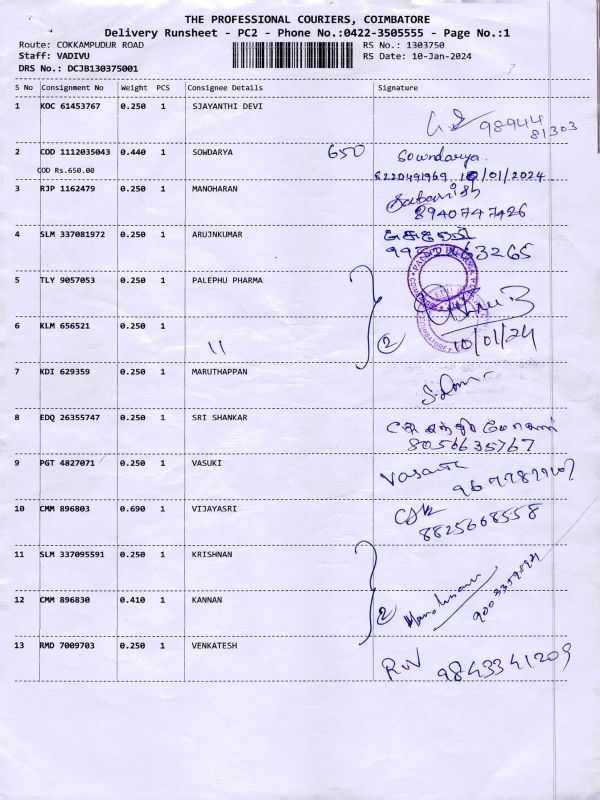 THE PROFESSIONAL COURIERS, COIMBATORE
Delivery Runsheet - PC2 - Phone No.:0422-3505555 - Page No.:1
Route: COKKAMPUDUR ROAD RS No.: 1303750
Staff: VADIVU RS Date: 10-Jan-2024
DRS No.: DCJB130375001
S No Consignment No Weight PCS Consignee Details Signature
1 KOC 61453767 0.250 1 SJAYANTHI DEVI
98944
81303
2 COD 1112035043 0.440 1 SOWDARYA 650 Sowndarya.
COD Rs.650.00 8220491969 10/01/2024
3 RJP 1162479 0.250 1 MANOHARAN Sabarish
8940747426
4 SLM 337081972 0.250 1 ARUJNKUMAR
63265
5 TLY 9057053 0.250 1 PALEPHU PHARMA
6 KLM 656521 0.250 1 11 2 10/01/24
7 KDI 629359 0.250 1 MARUTHAPPAN
8 EDQ 26355747 0.250 1 SRI SHANKAR
8056635767
9 PGT 4827071 0.250 1 VASUKI
10 CMM 896803 0.690 1 VIJAYASRI
8825668558
11 SLM 337095591 0.250 1 KRISHNAN
12 CMM 896830 0.410 1 KANNAN 2
13 RMD 7009703 0.250 1 VENKATESH
9843341209